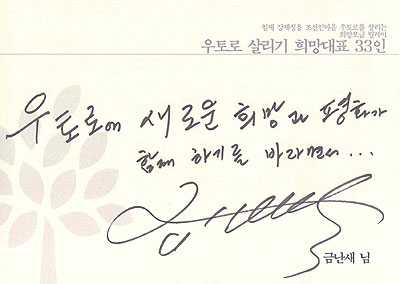 일제 강제징용 조선인마을 우토로를 살리는
희망모금 릴레이
우토로 살리기 희망대표 33인
우토로에 새로운 희망과 평화가
함께 하기를 바라면서...
금난새 님